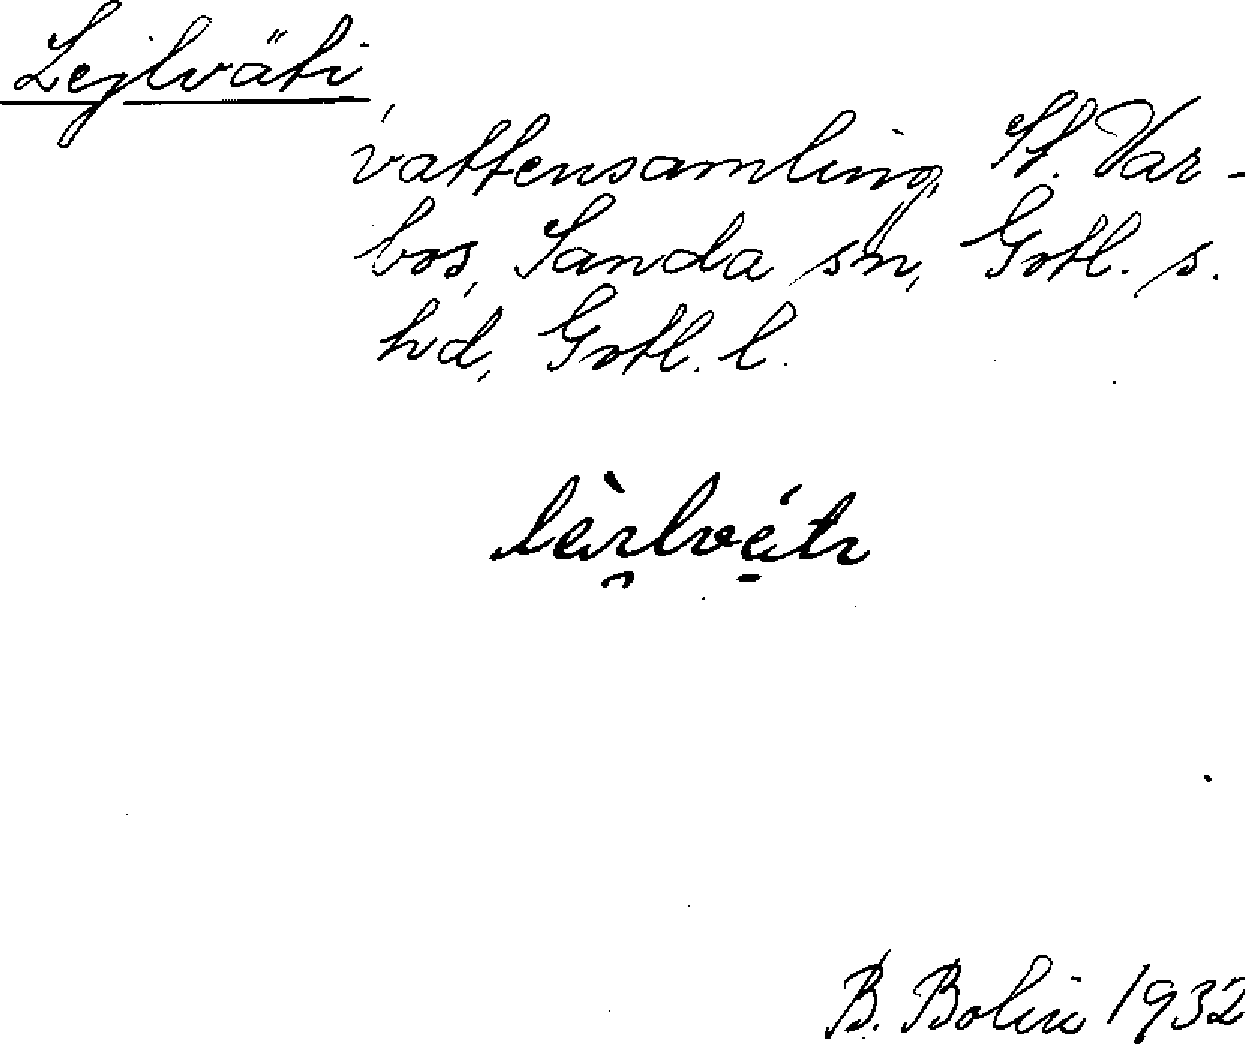 Lejlväti
vattensamling, St. Var-
bos, Sanda sn, Gotl. s.
hd, Gotl. l.
B. Bolin 1932